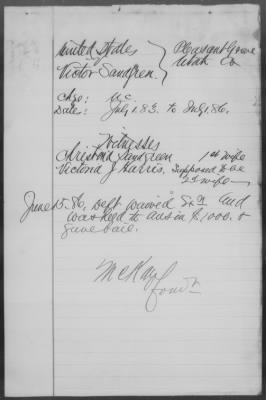 United States
vs
Victor Sandgren.
Pleasant Grove
Utah Co
Chge: U.C.
Date: July 1.83. to July 1.86.
Witnesses
Christina Sandgreen 1st wife
Victoria J Harris. supposed to be
2d wife
June 15.86, Deft waived Ex. and
was held to ans in $1000. &
gave bail.
McKay